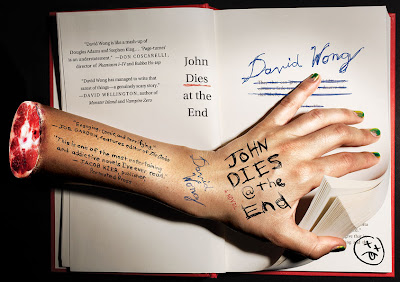 "David Wong is like a mash-up of
Douglas Adams and Stephen King... 'Page-turner'
is an understatement." —DON COSCARELLI,
director of Phantasm I–IV and Bubba Ho-tep
"David Wong has managed to write that
rarest of things—a genuinely scary story."
—DAVID WELLINGTON, author of
Monster Island and Vampire Zero
John
Dies
at the
End
David Wong
"
—JOEL
features editor of
"This is one of the most entertaining
and addictive novels I've ever read."
—JACOB KIER, publisher,
Permuted Press
David
Wong
JOHN
DIES
@ the
End